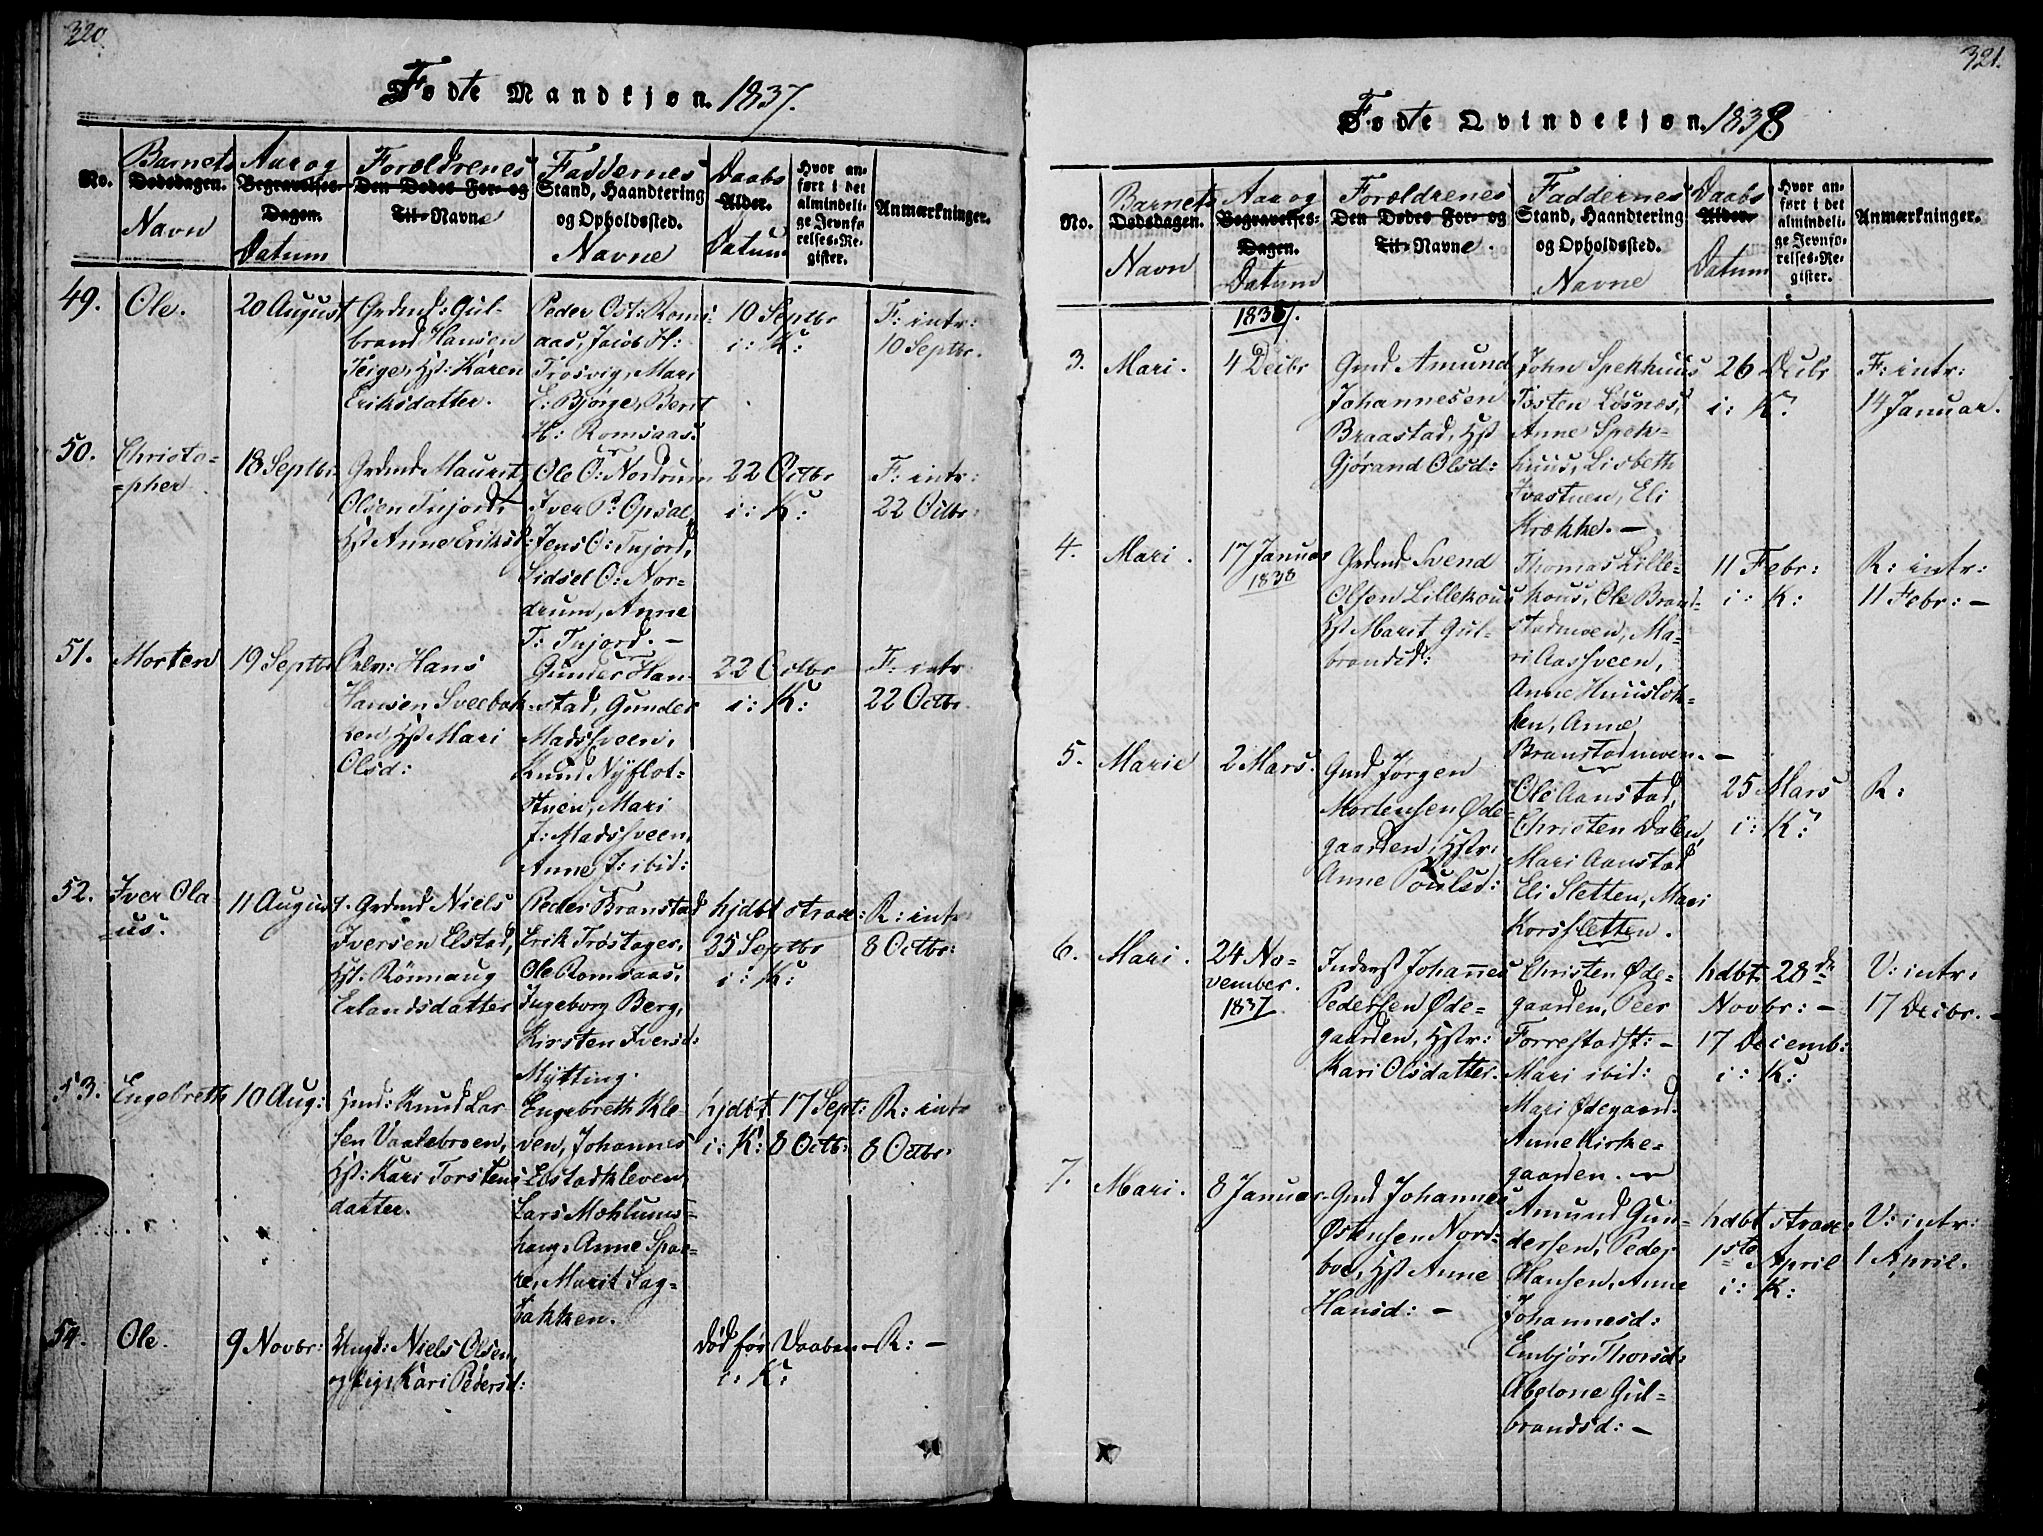 320.
Fødte Mandkjøn. 1837.
No.
Barnets
Dødsdagen.
Navn
Aar og
Begravelses-
Dagen.
Datum
Forældrenes
Den Dødes For- og
Til-Navne
Faddernes
Stand, Haandtering
og Opholdssted.
Navne
Daabs
Alder.
Datum
Hvor an-
ført i det
almindeli-
ge Jevnfø-
relses-Re-
gister.
Anmærkninger.
49. Ole. 20 August
Grdmd: Gul-
brand Hansen
Teiger, Hst: Karen
Eriksdatter.
Peder Ost: Roms-
aas, Jacob H:
Trosvig, Mari
E: Bjørge, Berit
H: Romsaas.
10 Septbr
i: K:
F: intr:
10 Septbr.
50. Christo-
=pher
18 Septbr,
Grdmd Maurits
Olsen Tujord,
Hst Anne Eriksd:
Ole O: Nordrum
Iver P: Opsal,
Jens O: Tujord,
Sidsel O: Nor-
drum, Anne
T: Tujord. —
22 Octbr
i: K:
F: intr:
22 Octbr.
51. Morten 19 Septbr
Hans
Hansen Sveebak-
ken Hst Mari
Olsd:
Gunder Han-
stad, Gunder
Madssveen,
Knud Nyflot-
stuen, Mari
J: Madssveen,
Anne J: ibid:
22 Octbr
i: K:
F: intr
22 Octbr.
52. Iver Ola-
us.
11 August.
Grdmd Niels
Iversen Elstad,
Hst: Rönnaug
Erlandsdatter
Peder Branstad
Erik Trøstager,
Ole Romsaas,
Ingeborg Berg,
Kirsten Iversd:
Mytting.
hjdbt strax:
25 Septbr
i: K:
R: intr
8 Octbr:
53. Engebreth 10 Aug:
Hmd: Knud Lar-
sen Vaalebroen,
Hst: Kari Torstens-
datter.
Engebreth Kle-
ven, Johannes
Elstadkleven
Lars Mohlums-
haug, Anne Spar-
re, Marit Sag-
bakken.
hjdbt 17 Sept:
i: K: 8 Octb:
R: intr
8 Octbr.
54. Ole. 9 Novbr:
Ungk: Niels Olsen,
og Pig: Kari Pedersd:
død før Daaben
i: K:
R: —
321.
Fødte Qvindekjøn. 1838
No.
Barnets
Dødsdagen.
Navn
Aar og
Begravelses-
Dagen.
Datum
Forældrenes
Den Dødes For- og
Til-Navne.
Faddernes
Stand, Haandtering
og Opholdssted.
Navne
Daabs
Alder.
Datum
Hvor an-
ført i det
almindeli-
ge Jevnfø-
relses-Re-
gister.
Anmærkninger.
1837.
3. Mari. 4 Decbr
Gmd Amund
Johannesen
Braastad, Hst
Gjørand Olsd:
John Spekhuus
Tosten Løsnæs,
Anne Spek-
huus, Lisbeth
Ivastuen, Eli
Krekke. —
26 Decbr
i: K:
F: intr:
14 Januar.
4. Mari. 17 Januar
1838
Grdmd Svend
Olsen Lillehous
Hst Marit Gul-
brandsd:
Thomas Lille-
hous, Ole Bran-
stadmoen, Ma-
ri Aassveen,
Anne Huuslok-
ken, Anne
Branstadmoen. —
11 Febr:
i: K:
R: intr:
11 Febr: —
5. Marie 2 Mars.
Gmd Jørgen
Mortensen Øde-
gaarden, Hstr:
Anne Poulsd:
Ole Aanstad,
Christen Dalen,
Mari Aanstad
Eli Sletten, Mari
Korssletten.
25 Mars
i: K:
R:
6. Mari. 24 No-
vember.
1837.
Inderst Johannes
Pedersen Øde-
gaarden, Hstr:
Kari Olsdatter.
Christen Øde-
gaarden, Peer
Forrestadst: —
Mari ibid:
Mari Ødegaard
Anne Kirke-
gaarden. —
hdbt 28de
Novbr: —
17 Decemb:
i: K:
V: intr:
17 Decbr. —
7. Mari. 8 Januar
Gmd Johannes
Østensen Nord-
boe, Hst Anne
Hansd: —
Amund Gun-
dersen, Peder
Hansen, Anne
Johannesd:
Embjør Thorsd:
Abelone Gul-
brandsd: —
hdbt strax:
1ste April
i: K:
V: intr:
1 April.